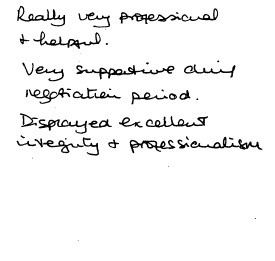 Really very professional
& helpful.
Very supportive during
negotiation period.
Displayed excellent
integrity & professionalism